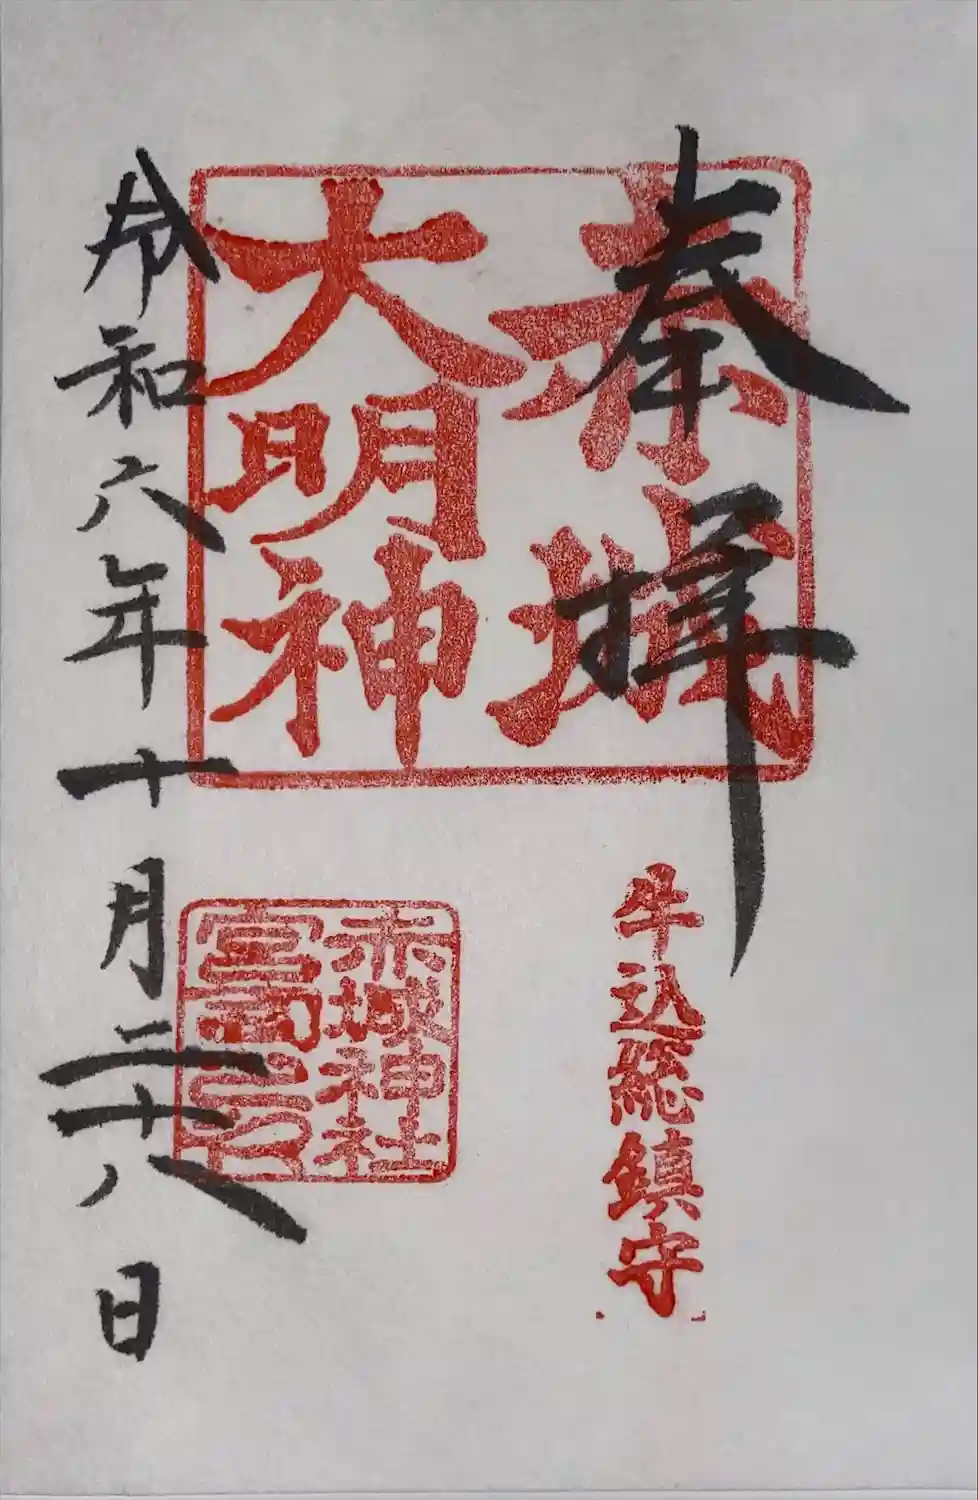 奉拝
赤城
大明神
牛込総鎮守
赤城神社
宮司之印
令和六年十月二十八日